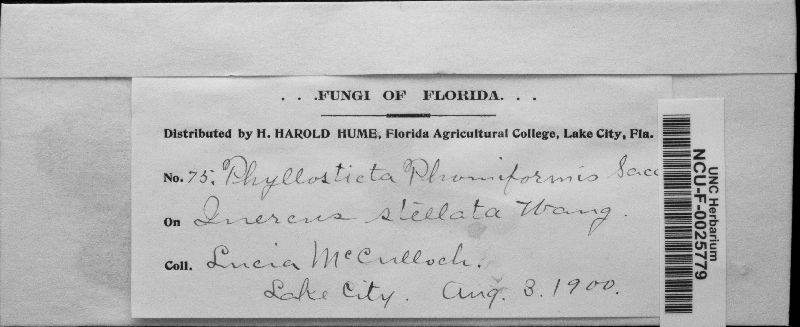 . . .FUNGI OF FLORIDA. . .
Distributed by H. HAROLD HUME, Florida Agricultural College, Lake City, Fla.
No. 75. Phyllosticta Phomiformis Sacc
On Quercus stellata Wang.
Coll. Lucia McCulloch.
Lake City. Aug. 3. 1900.
UNC Herbarium
NCU-F-0025779